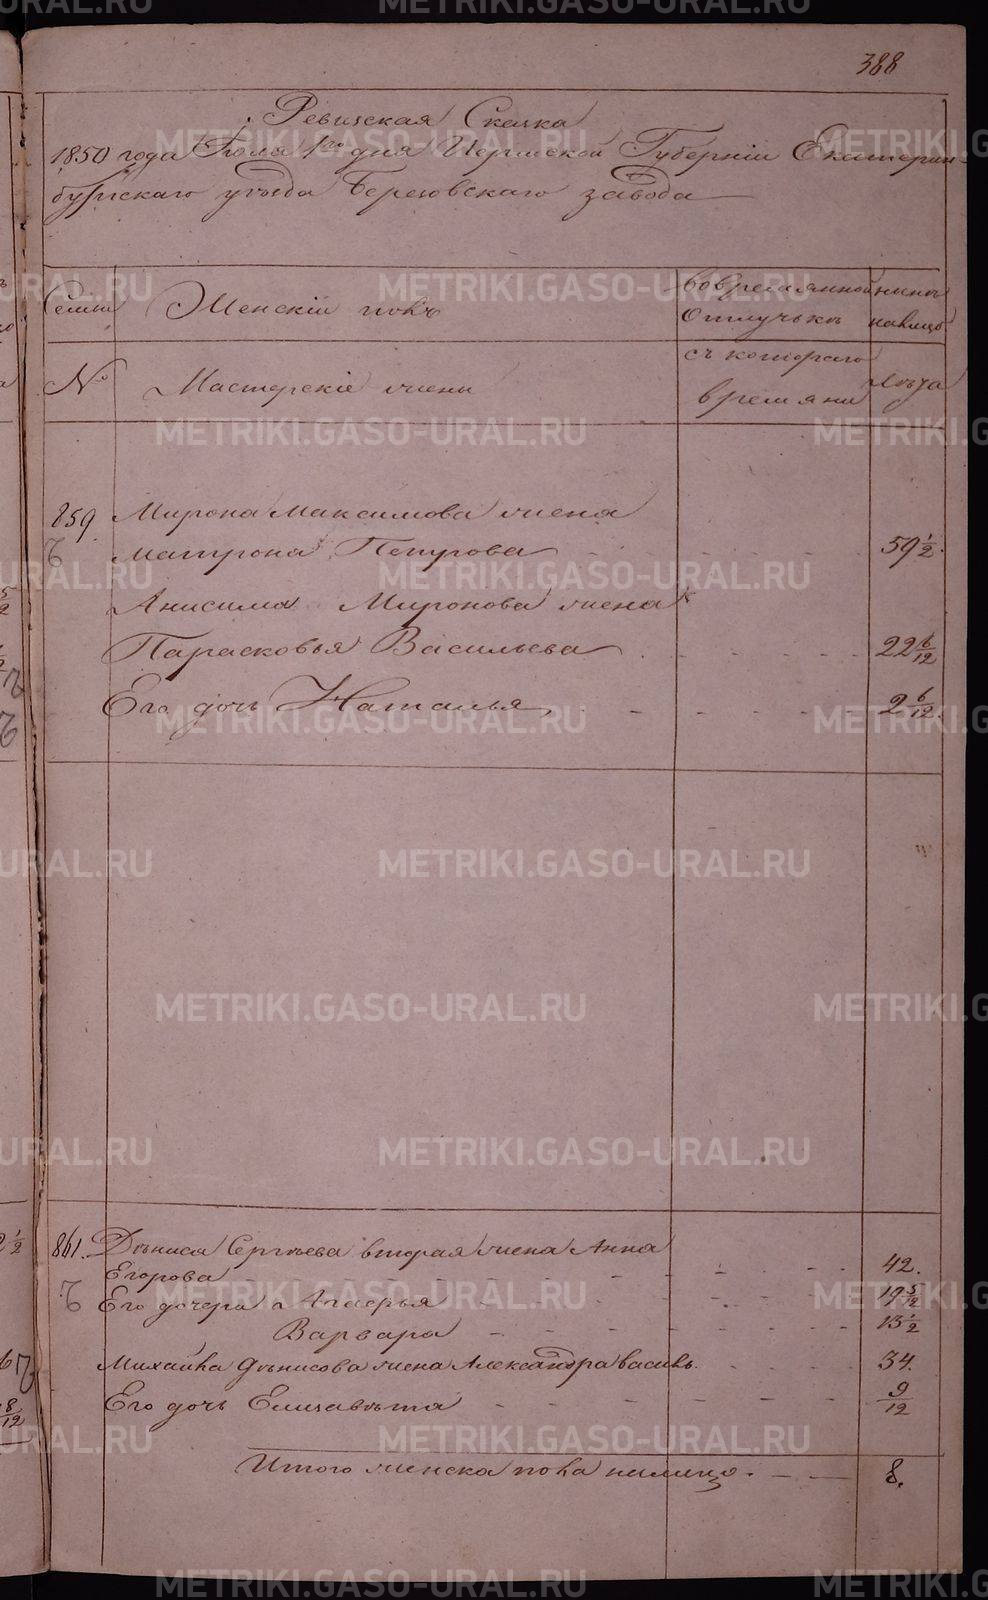 388
Ревизская Сказка
1850 года Июля 1го дня Пермской Губерніи Екатерин-
бургскаго уѣзда Березовскаго завода
Семьи
Женскій полъ
Во временной
Отлучькѣ
нынѣ
налицо
№
Мастерскіе жены
съ котораго
времяни
Лѣта
859.
Мирона Максимова жена
Матрона Петрова - - - - 59 1/2.
Анисима Миронова жена
Парасковья Васильева - - - - 22 6/12
Его дочь Наталья - - - - 2 6/12.
861. Дѣниса Сергѣева вторая жена Анна
Егорова - - - - 42.
Его дочери Агаѳья - - - - 19 5/12
Варвара - - - - 13 1/2
Михайла Дѣнисова жена Александра василь. - - - - 34.
Его дочь Елизавѣта - - - - 9/12
Итого женска пола налицо. - - - 8.
METRIKI.GASO-URAL.RU